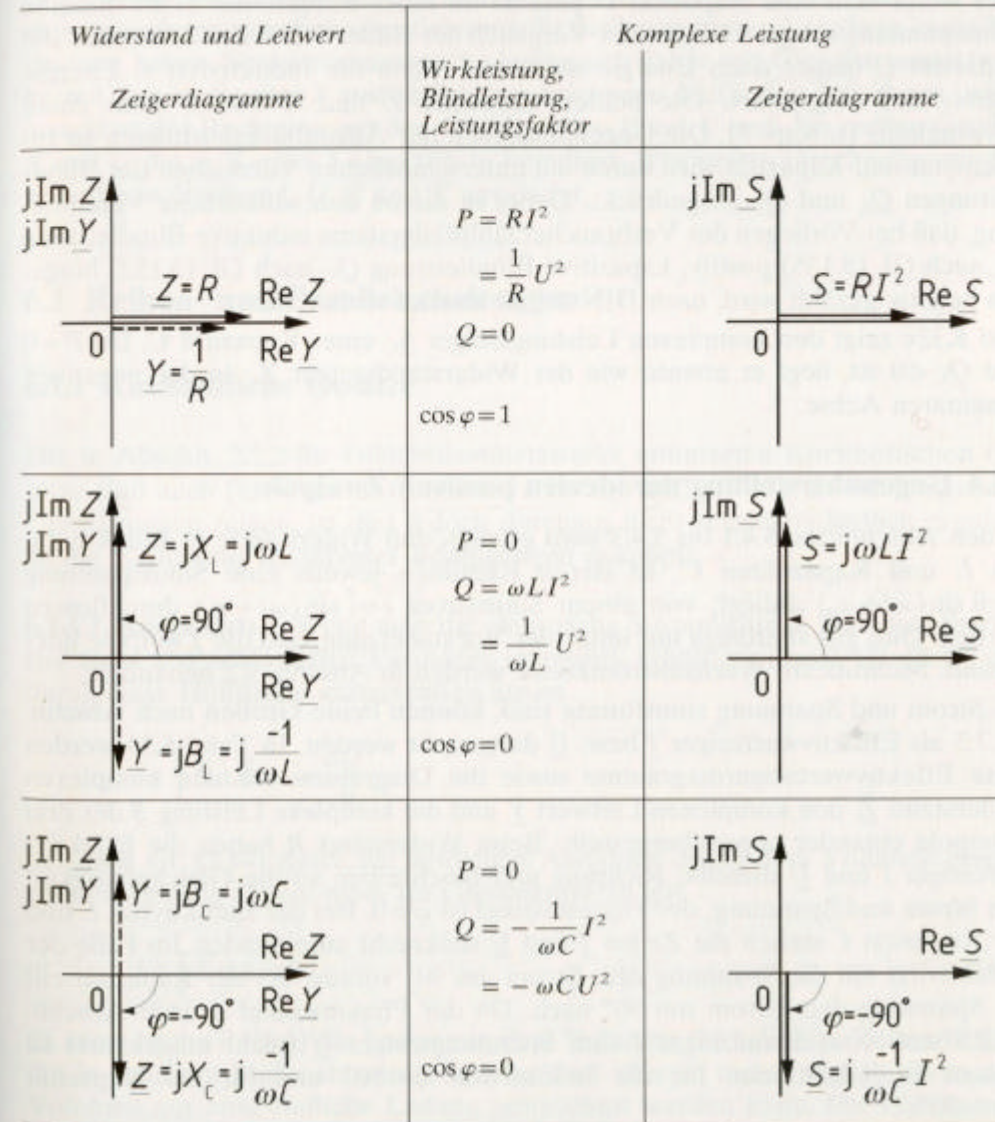 Widerstand und Leitwert
Komplexe Leistung
Zeigerdiagramme
Wirkleistung,
Blindleistung,
Leistungsfaktor
Zeigerdiagramme
jIm Z
jIm Y
Z = R Re Z
0 Y = 1/R Re Y
P = RI²
= 1/R U²
Q = 0
cos φ = 1
jIm S
S = RI² Re S
0
jIm Z
jIm Y
Z = jX_L = jωL
φ = 90°
Re Z
0 Re Y
Y = jB_L = j -1/ωL
P = 0
Q = ωLI²
= 1/ωL U²
cos φ = 0
jIm S
S = jωLI²
φ = 90° Re S
0
jIm Z
jIm Y
Y = jB_C = jωC
Re Z
0 Re Y
φ = -90°
Z = jX_C = j -1/ωC
P = 0
Q = - 1/ωC I²
= - ωCU²
cos φ = 0
jIm S
Re S
0 φ = -90°
S = j -1/ωC I²